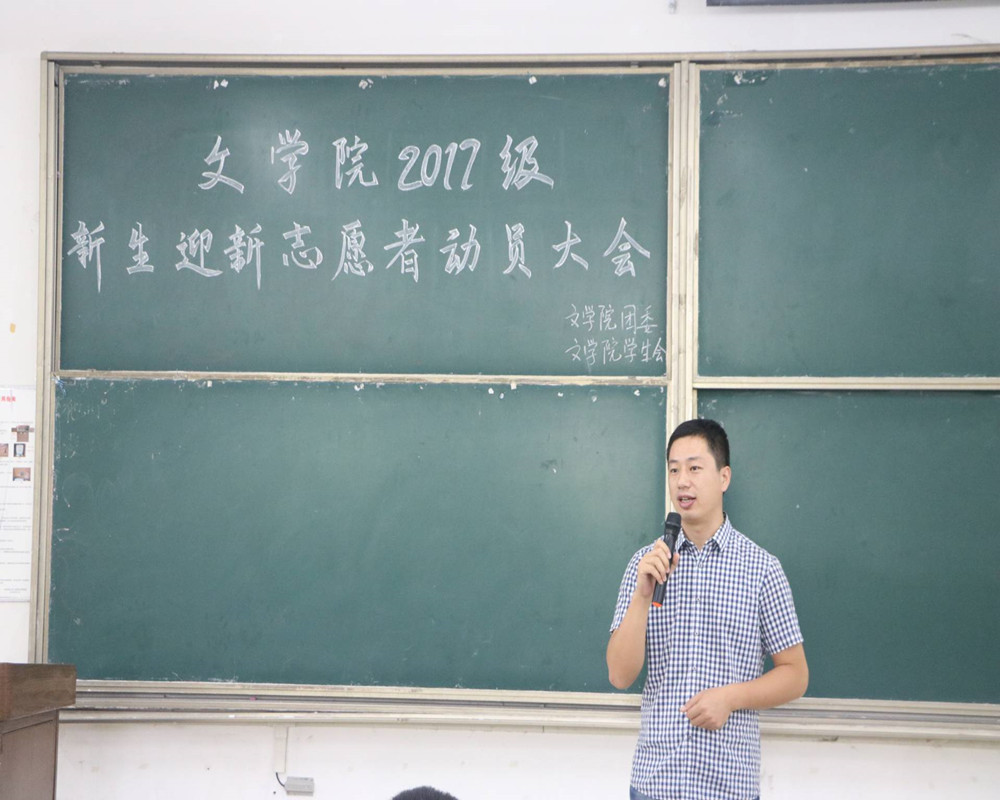 文学院2017级
新生迎新志愿者动员大会
文学院团委
文学院学生会